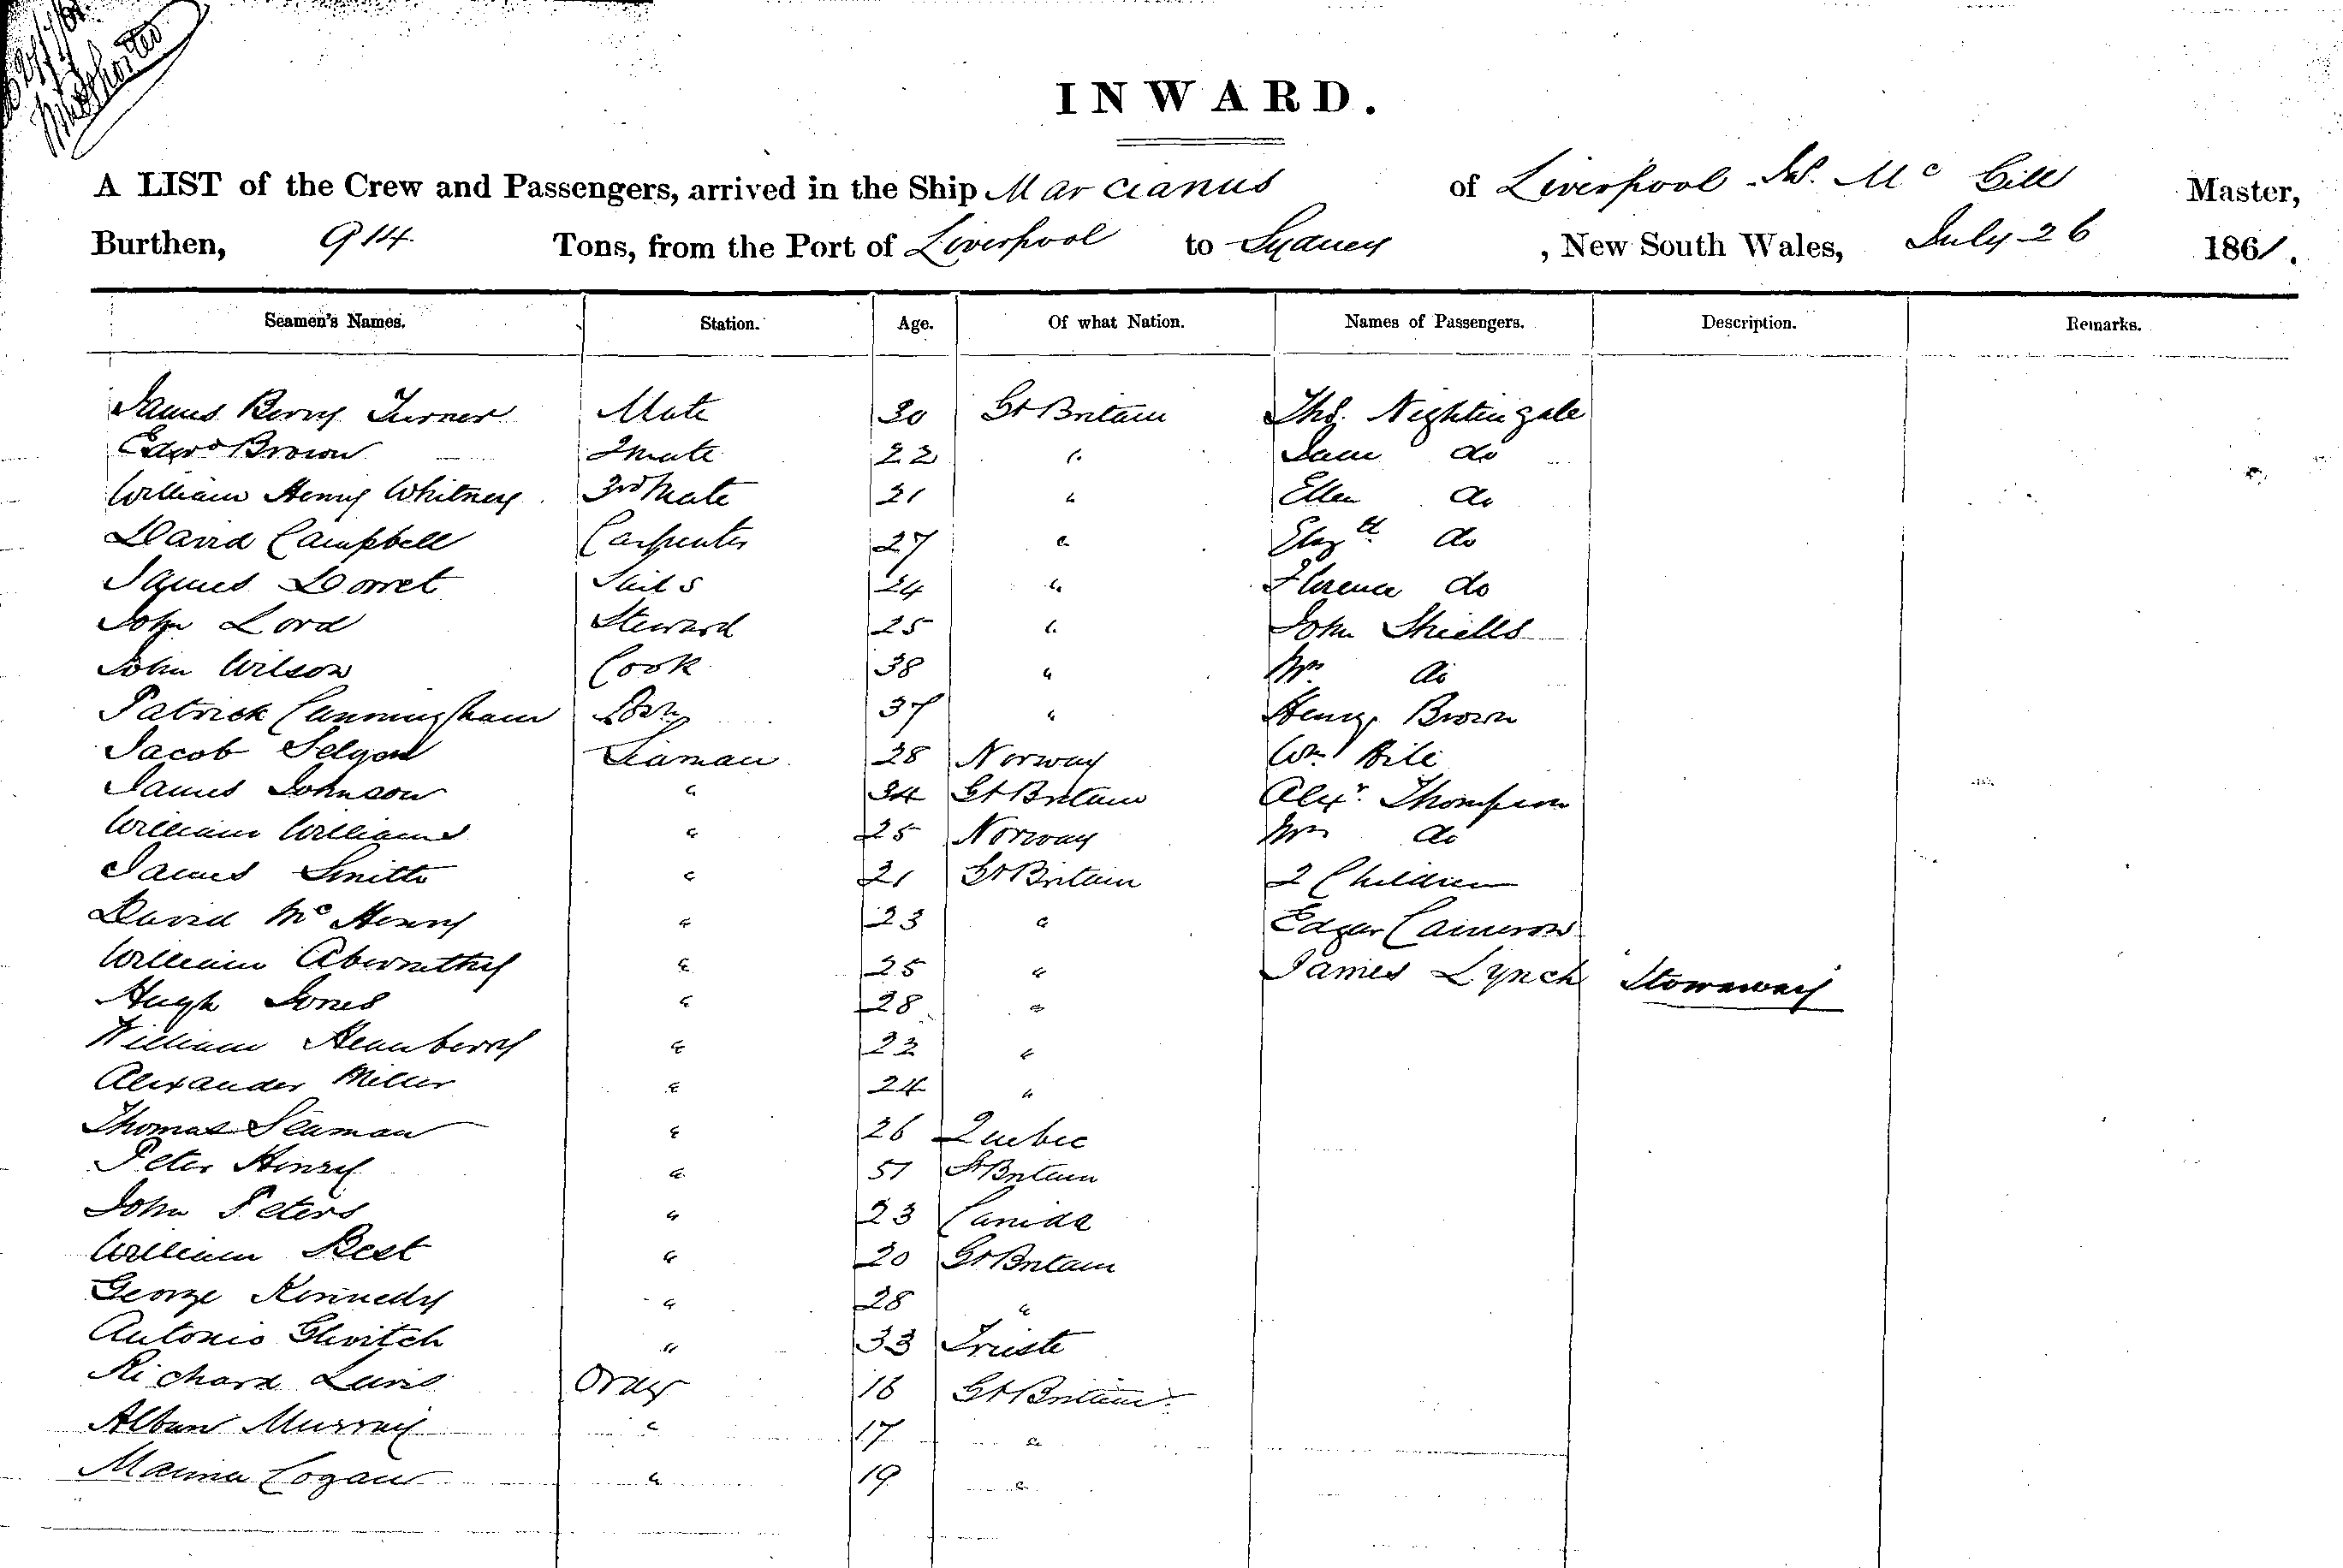 INWARD.
A LIST of the Crew and Passengers, arrived in the Ship Marcianus of Liverpool Js. Mc Gill Master,
Burthen, 914 Tons, from the Port of Liverpool to Sydney , New South Wales, July 26 1861.
Seamen's Names. Station. Age. Of what Nation. Names of Passengers. Description. Remarks.
James Berry Turner Mate 30 Gt Britain Thos. Nightingale
Edwd Brown 2 mate 22 " Jane do
William Henry Whitney 3rd Mate 21 " Ellen do
David Campbell Carpenter 27 " Elizth do
James Dorret Sails 24 " Florence do
John Lord Steward 25 " John Shiells
John Wilson Cook 38 " Mrs do
Patrick Cunningham Bosn 37 " Henry Brown
Jacob Seaman 28 Norway Wm Bile
James Johnson " 34 Gt Britain Alexr. Thompson
William Williams " 25 Norway Mrs do
James Smith " 21 Gt Britain 2 Children
David Mc Henry " 23 " Edgar Cameron
William Abernethy " 25 " James Lynch Stowaway
Hugh Jones " 28 "
William Hanberry " 22 "
Alexander Miller " 24 "
Thomas Seaman " 26 Quebec
Peter Henry " 51 Gt Britain
John Peters " 23 Canida
William Best " 20 Gt Britain
George Kennedy " 28 "
Antonio Glivitch " 33 Trieste
Richard Lewis Ordy 18 Gt Britain
Alban Murray " 17 "
Logan " 19 "